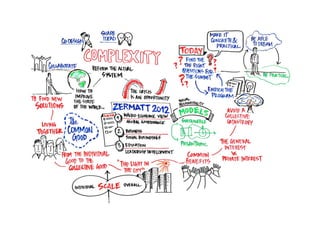 SHARE
IDEAS
CO-DESIGN
COMPLEXITY
REFORM THE ACTUAL
SYSTEM
COLLABORATE
HOW TO
IMPROVE
THE STATE
OF THE WORLD...
THE CRISIS
IS AN OPPORTUNITY
TODAY
MAKE IT
CONCRETE &
PRACTICAL
BE ABLE
TO DREAM
BE PRACTICAL
FIND THE
THE RIGHT
FOR
THE SUMMIT
ENRICH THE
PROGRAM
TO FIND NEW
SOLUTIONS
LIVING
TOGETHER
THE
COMMON
GOOD
ZERMATT 2012
GLOBAL GOVERNANCE
BUSINESS
EDUCATION
LEADERSHIP DEVELOPMENT
MODELS
GOVERNANCE
PHILANTHROPIC
AVOID A
COLLECTIVE
THE GENERAL
INTEREST
VS
PRIVATE INTEREST
COMMON
BENEFITS
THE LIGHT IN
THE CITY
FROM THE INDIVIDUAL
GOOD TO THE
COLLECTIVE GOOD
INDIVIDUAL SCALE OVERALL